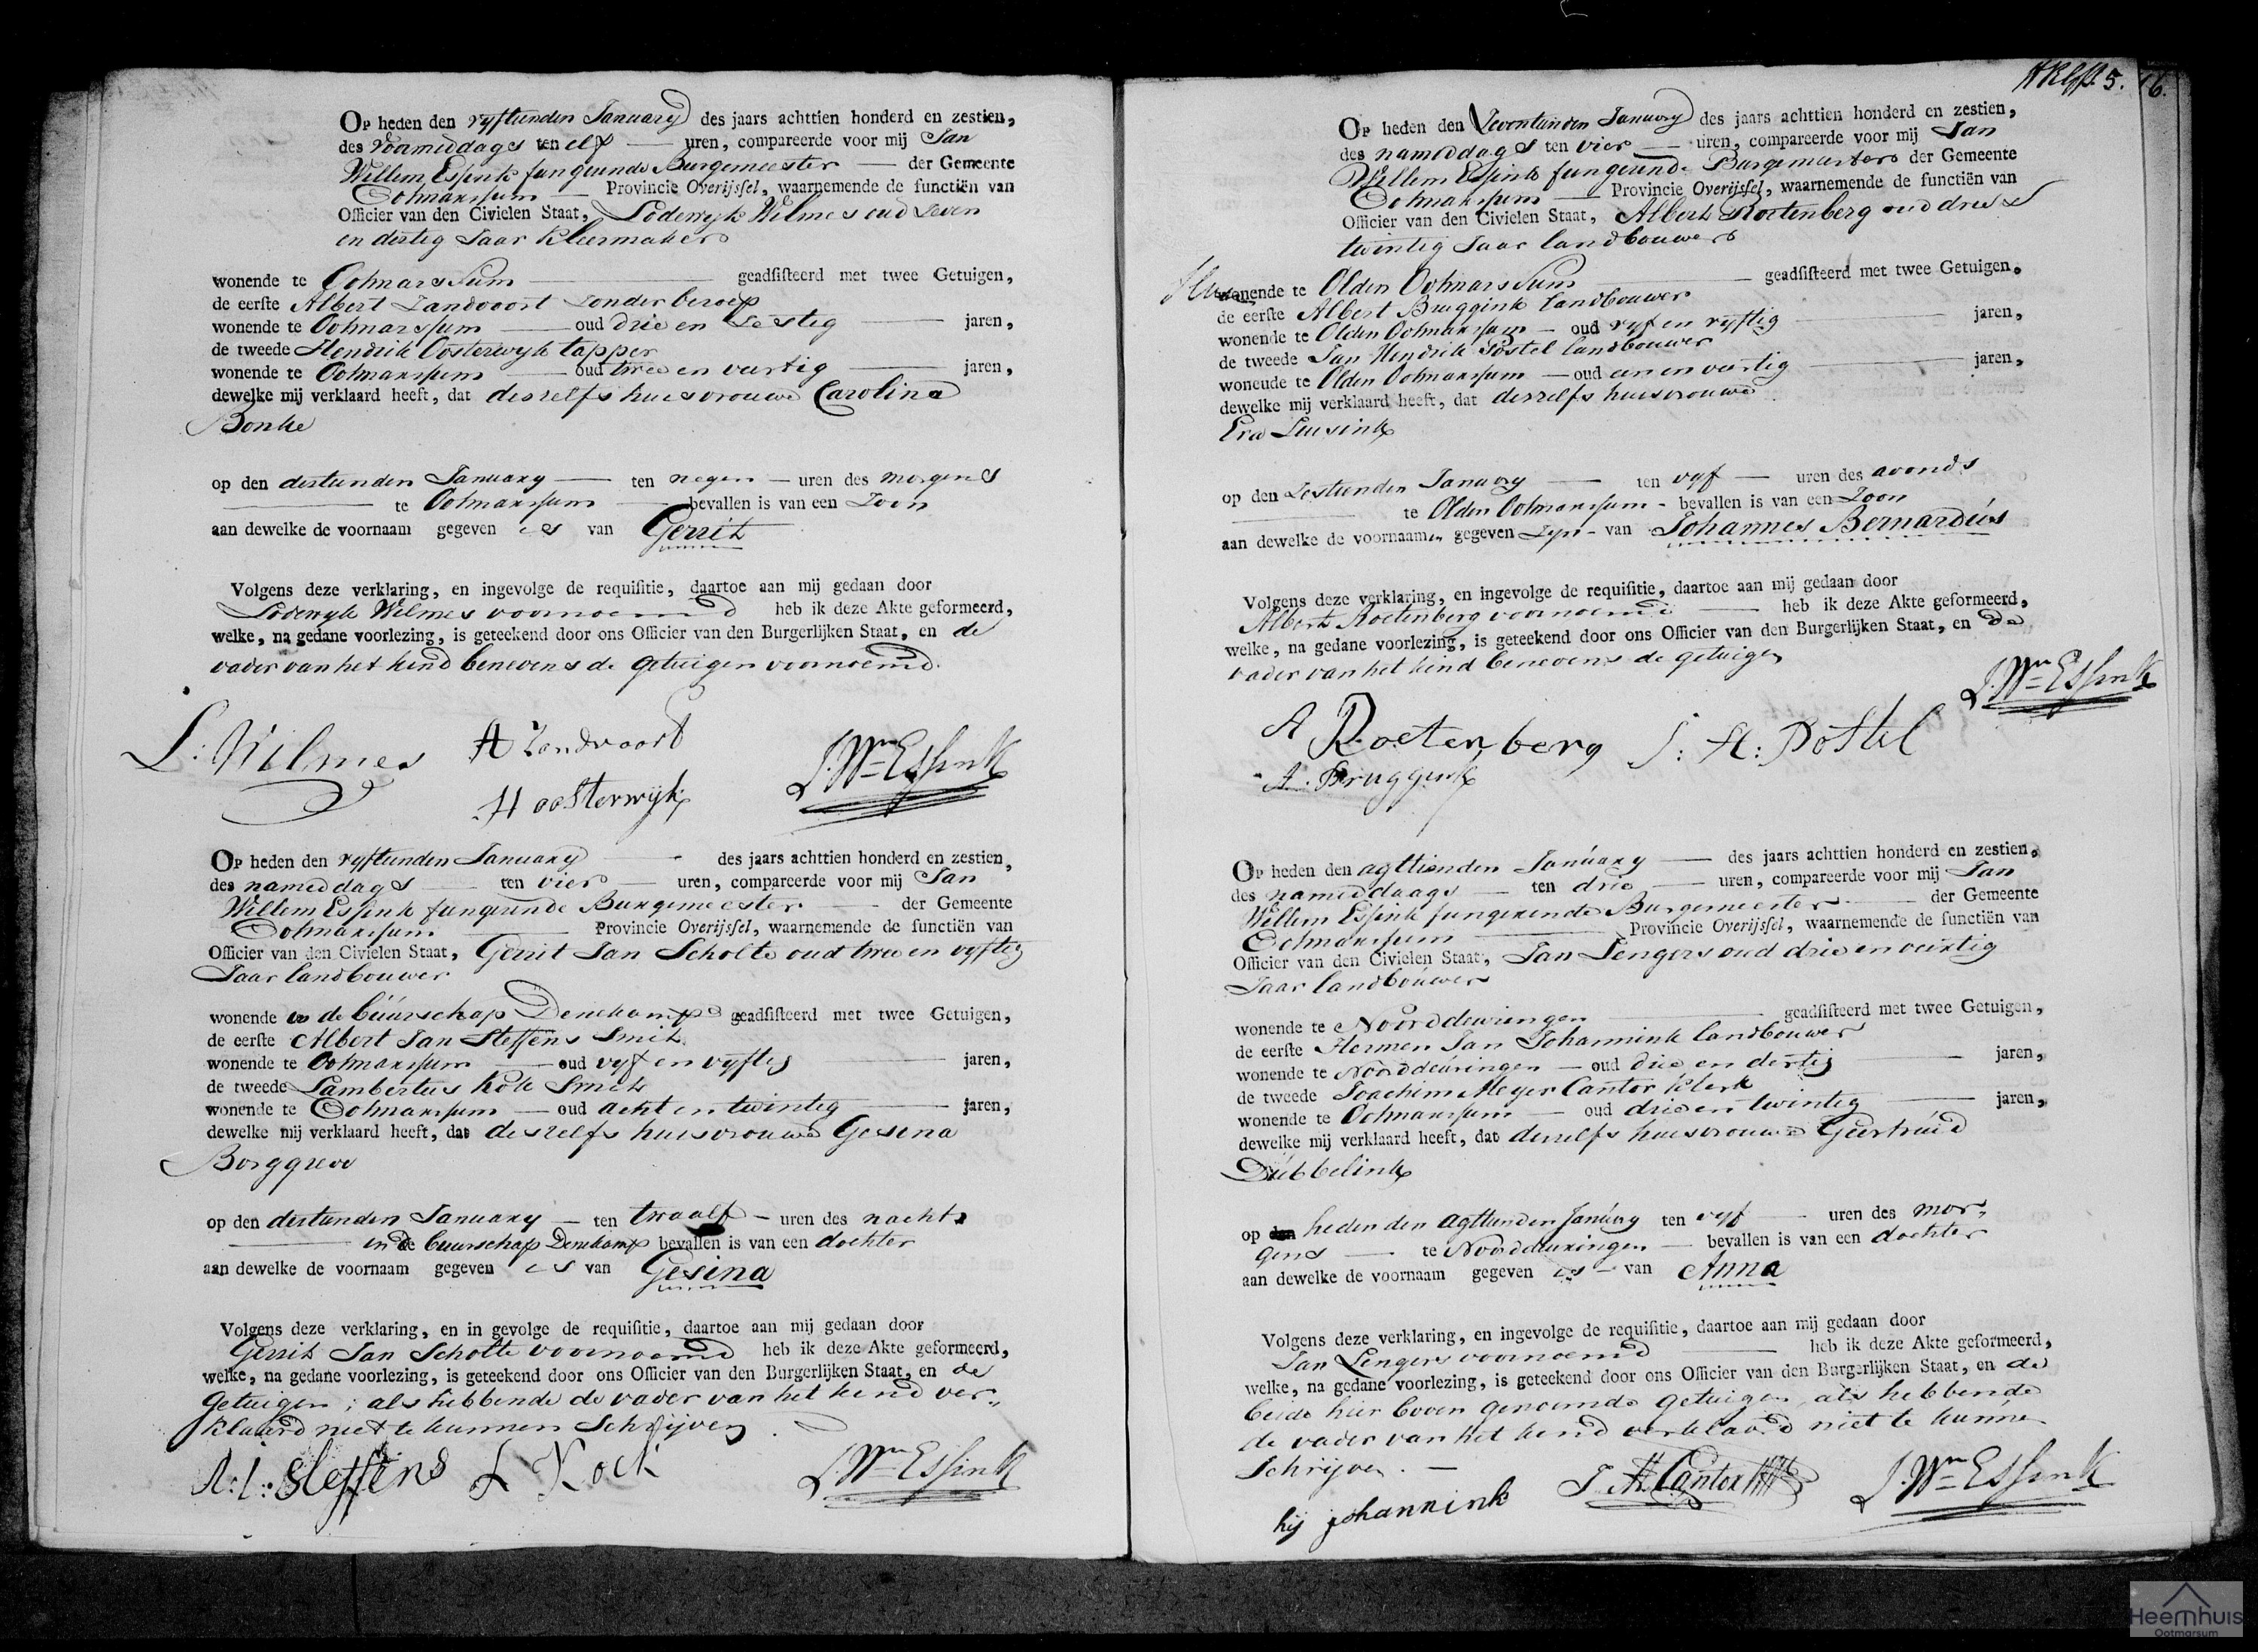 Op heden den vyftienden January des jaars achttien honderd en zestien,
des voormiddags ten elf uren, compareerde voor mij Jan
Willem Essink fungerende Burgemeester der Gemeente
Ootmarssum Provincie Overijssel, waarnemende de functiën van
Officier van den Civielen Staat, Lodewyk Wilmes oud seven
en dertig Jaar Kleermaker
wonende te Ootmarssum geadsisteerd met twee Getuigen,
de eerste Albert Zandvoort zonder beroep
wonende te Ootmarssum oud drie en sestig jaren,
de tweede Hendrik Oosterwyk tapper
wonende te Ootmarssum oud twee en veertig jaren,
dewelke mij verklaard heeft, dat deszelfs huisvrouwe Carolina
Bonke
op den dertienden January ten negen uren des morgens
te Ootmarssum bevallen is van een Zoon
aan dewelke de voornaam gegeven is van Gerrit
Volgens deze verklaring, en ingevolge de requisitie, daartoe aan mij gedaan door
Lodewyk Wilmes voornoemd heb ik deze Akte geformeerd,
welke, na gedane voorlezing, is geteekend door ons Officier van den Burgerlijken Staat, en de
vader van het kind benevens de getuigen voornoemd.
L: Wilmes A Zandvoort J. Wm Essink
H oosterwijk
Op heden den vyftienden January des jaars achttien honderd en zestien,
des nameddags ten vier uren, compareerde voor mij Jan
Willem Essink fungerende Burgemeester der Gemeente
Ootmarssum Provincie Overijssel, waarnemende de functiën van
Officier van den Civielen Staat, Gerrit Jan Scholte oud twee en vyftig
Jaar landbouwer
wonende in de buurschap Denekamp geadsisteerd met twee Getuigen,
de eerste Albert Jan Steffens Smit
wonende te Ootmarssum oud vyf en vyftig jaren,
de tweede Lambertus Kok Smit
wonende te Ootmarssum oud acht en twintig jaren,
dewelke mij verklaard heeft, dat deszelfs huisvrouwe Gesina
Borggreve
op den dertienden January ten twaalf uren des nachts
in de buurschap Denekamp bevallen is van een dochter
aan dewelke de voornaam gegeven is van Gesina
Volgens deze verklaring, en in gevolge de requisitie, daartoe aan mij gedaan door
Gerrit Jan Scholte voornoemd heb ik deze Akte geformeerd,
welke, na gedane voorlezing, is geteekend door ons Officier van den Burgerlijken Staat, en de
Getuigen; als hebbende de vader van het kend ver„
klaard niet te kunnen Schrijven
A: J: Steffens L Kock J. Wm Essink
5. 16.
Op heden den Zeventienden January des jaars achttien honderd en zestien,
des nameddags ten vier uren, compareerde voor mij Jan
Willem Essink fungerende Burgemeester der Gemeente
Ootmarssum Provincie Overijssel, waarnemende de functiën van
Officier van den Civielen Staat, Albert Roetenberg oud drie
twintig Jaar landbouwer
wonende te Olden Ootmarssum geadsisteerd met twee Getuigen,
de eerste Albert Bruggink landbouwer
wonende te Olden Ootmarssum oud vyf en vyftig jaren,
de tweede Jan Hendrik Postel landbouwer
wonende te Olden Ootmarssum oud een en veertig jaren,
dewelke mij verklaard heeft, dat deszelfs huisvrouwe
Eva Leusink
op den Zestienden January ten vyf uren des avonds
te Olden Ootmarssum bevallen is van een Zoon
aan dewelke de voornaamen gegeven zyn van Johannes Bernardus
Volgens deze verklaring, en ingevolge de requisitie, daartoe aan mij gedaan door
Albert Roetenberg voornoemd heb ik deze Akte geformeerd,
welke, na gedane voorlezing, is geteekend door ons Officier van den Burgerlijken Staat, en de
vader van het kind benevens de getuigen
J. Wm Essink
A Roetenberg J: H: Postel
A. Bruggink
Op heden den agttienden January des jaars achttien honderd en zestien,
des nameddaags ten drie uren, compareerde voor mij Jan
Willem Essink fungerende Burgemeester der Gemeente
Ootmarssum Provincie Overijssel, waarnemende de functiën van
Officier van den Civielen Staat, Jan Lengers oud drie en veertig
Jaar landbouwer
wonende te Noorddeuringen geadsisteerd met twee Getuigen,
de eerste Hermen Jan Johannink landbouwer
wonende te Noorddeuringen oud drie en dertig jaren,
de tweede Joachim Meyer Cantor Klerk
wonende te Ootmarssum oud drie en twintig jaren,
dewelke mij verklaard heeft, dat deszelfs huisvrouwe Geertruid
Dubbelink
op heden den agttienden January ten vyf uren des mor„
gens te Noorddeuringen bevallen is van een dochter
aan dewelke de voornaam gegeven is van Anna
Volgens deze verklaring, en ingevolge de requisitie, daartoe aan mij gedaan door
Jan Lengers voornoemd heb ik deze Akte geformeerd,
welke, na gedane voorlezing, is geteekend door ons Officier van den Burgerlijken Staat, en de
beide hier boven genoemde getuigen, als hebbende
de vader van het kend verklaard niet te kunne
Schrijven.
hij johannink J M Cantor J. Wm Essink
Heemhuis
Ootmarsum